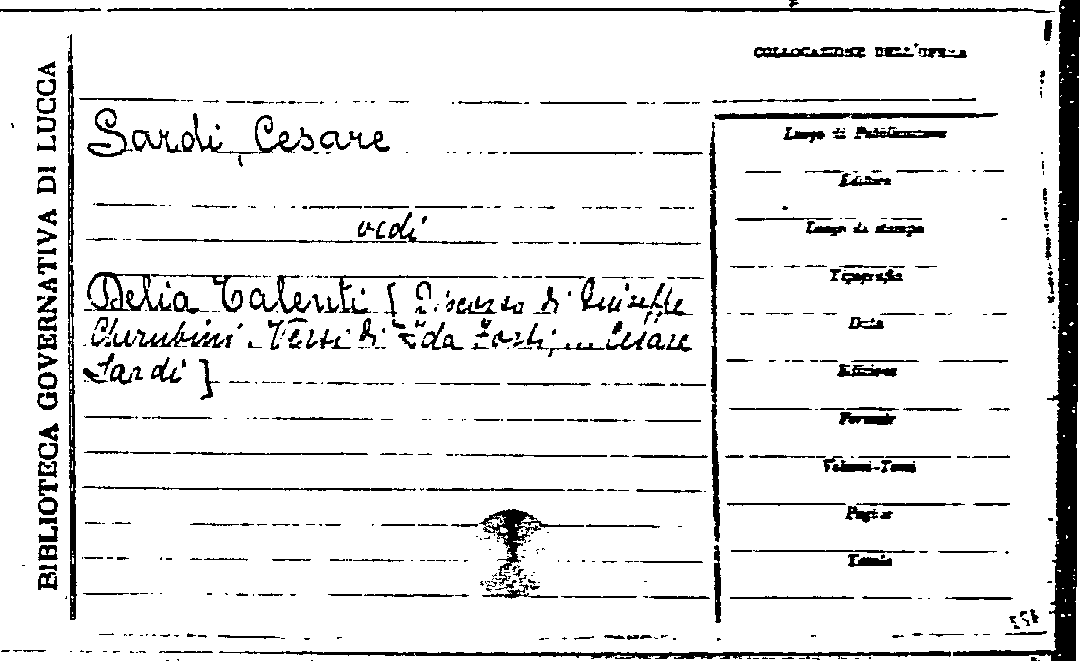 BIBLIOTECA GOVERNATIVA DI LUCCA
COLLOCAZIONE DELL'OPERA
Sardi, Cesare
vedi
Delia Talenti [Discorso di Giuseppe
Cherubini. Versi di Ada Forti,... Cesare
Sardi]
Luogo di Pubblicazione
Editore
Luogo di stampa
Tipografia
Data
Edizione
Formato
Volumi-Tomi
Pagine
Tavole